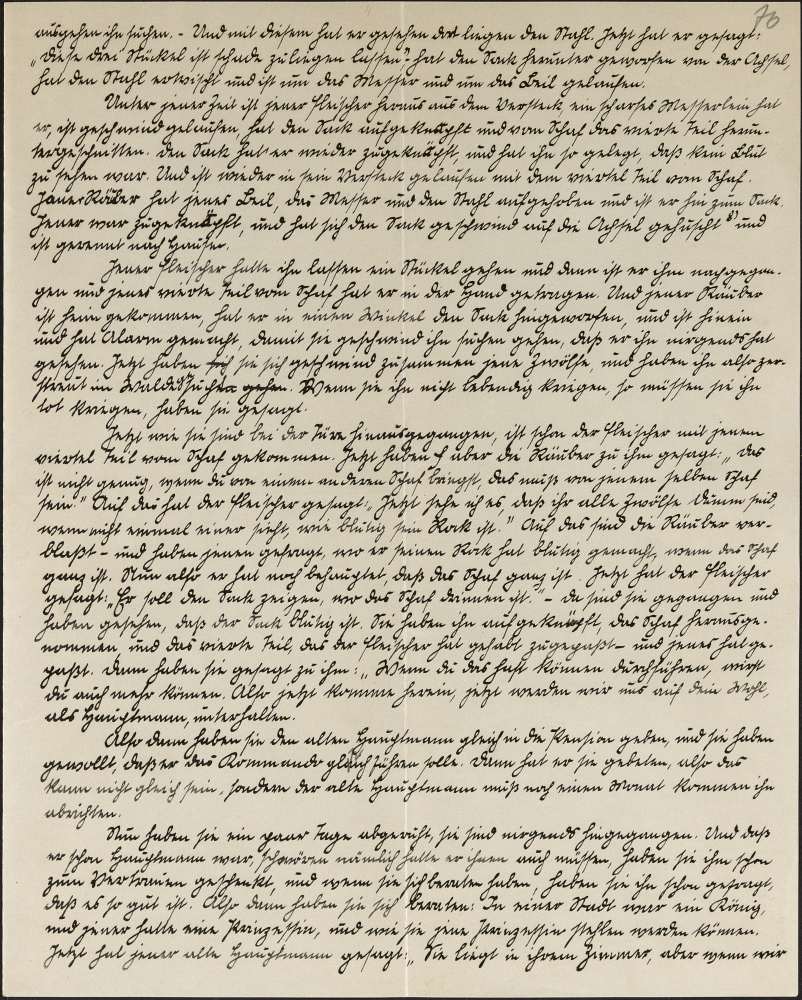 70
ausgehen ihn suchen. - Und mit diesem hat er gesehen dort liegen den Stahl. Jetzt hat er gesagt:
„Diese drei Stückel ist schade zuliegen lassen", hat den Sack herunter geworfen von der Achsel,
hat den Stahl erwischt und ist um das Messer und um das Beil gelaufen.
Unter jener Zeit ist jener Fleischer heraus aus dem Versteck, ein scharfes Messerlein hat
er, ist geschwind gelaufen, hat den Sack aufgeknüpft und vom Schaf das vierte Teil herun-
tergeschnitten. Den Sack hat er wieder zugeknüpft, und hat ihn so gelegt, daß kein Blut
zu sehen war. Und ist wieder in sein Versteck gelaufen mit dem viertel Teil vom Schaf.
Jener Räuber hat jenes Beil, das Messer und den Stahl aufgehoben und ist er hin zum Sack.
Jener war zugeknüpft, und hat sich den Sack geschwind auf die Achsel gehuscht 8) und
ist gerennt nach Hause.
Jener Fleischer hatte ihn lassen ein Stückel gehen und dann ist er ihm nachgegan-
gen und jenes vierte Teil vom Schaf hat er in der Hand getragen. Und jener Räuber
ist heim gekommen, hat er in einen Winkel den Sack hingeworfen, und ist hinein
und hat Alarm gemacht, damit sie geschwind ihn suchen gehen, daß er ihn nirgends hat
gesehen. Jetzt haben sie sich geschwind zusammen jene Zwölfe, und haben ihn also zer-
streut im Wald gesucht. Wenn sie ihn nicht lebendig kriegen, so müssen sie ihn
tot kriegen, haben sie gesagt.
Jetzt wie sie sind bei der Türe hinausgegangen, ist schon der Fleischer mit jenem
viertel Teil vom Schaf gekommen. Jetzt haben aber die Räuber zu ihm gesagt: „Das
ist nicht genug, wenn du von einem anderen Schaf bringst, das muß von jenem selben Schaf
sein." Auf das hat der Fleischer gesagt: „Jetzt sehe ich es, daß ihr alle Zwölfe dumm seid,
wenn nicht einmal einer sieht, wie blutig sein Rock ist." Auf das sind die Räuber ver-
blaßt - und haben jenen gefragt, wo er seinen Rock hat blutig gemacht, wenn das Schaf
ganz ist. Nun also er hat noch behauptet, daß das Schaf ganz ist. Jetzt hat der Fleischer
gesagt: „Er soll den Sack zeigen, wo das Schaf drinnen ist." - Da sind sie gegangen und
haben gesehen, daß der Sack blutig ist. Sie haben ihn aufgeknüpft, das Schaf herausge-
nommen, und das vierte Teil, das der Fleischer hat gehabt zugepaßt - und jenes hat ge-
paßt. Dann haben sie gesagt zu ihm: „Wenn du das hast können durchführen, wirst
du auch mehr können. Also jetzt komme herein, jetzt werden wir uns auf dein Wohl,
als Hauptmann, unterhalten.
Also dann haben sie den alten Hauptmann gleich in die Pension geben, und sie haben
gewollt, daß er das Kommando gleich führen solle. Dann hat er sie gebeten, also das
kann nicht gleich sein, sondern der alte Hauptmann muß noch einen Monat kommen ihn
abrichten.
Nun haben sie ein paar Tage abgeruht, sie sind nirgends hingegangen. Und daß
er schon Hauptmann war, schwören nämlich hatte er ihnen auch müssen, haben sie ihm schon
zum Vertrauen geschenkt, und wenn sie sich beraten haben, haben sie ihn schon gefragt,
daß es so gut ist. Also dann haben sie sich beraten: In einer Stadt war ein König,
und jener hatte eine Prinzessin, und wie sie jene Prinzessin stehlen werden können.
Jetzt hat jener alte Hauptmann gesagt: „Sie liegt in ihrem Zimmer, aber wenn wir